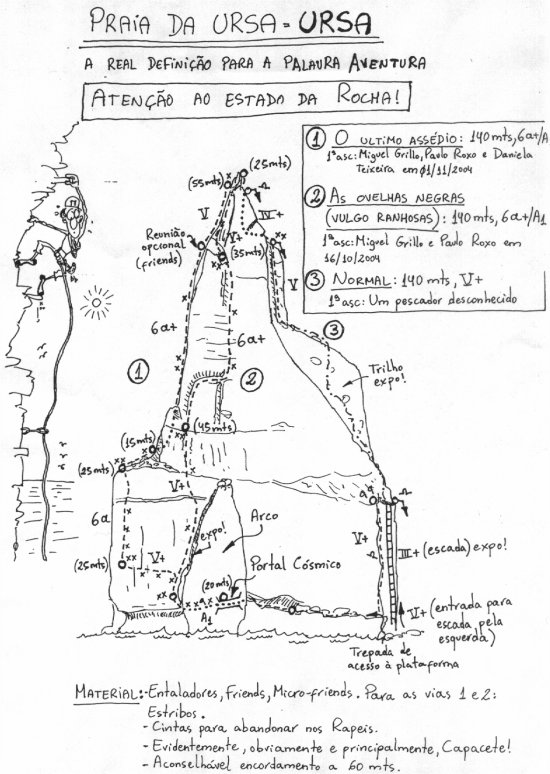 PRAIA DA URSA - URSA
A REAL DEFINIÇÃO PARA A PALAVRA AVENTURA
ATENÇÃO AO ESTADO DA ROCHA!
① O ULTIMO ASSÉDIO: 140mts, 6a+/A
1ª asc: Miguel Grillo, Paulo Roxo e Daniela
Teixeira em 01/11/2004
② AS OVELHAS NEGRAS
(VULGO RANHOSAS): 140mts, 6a+/A1
1ª asc: Miguel Grillo e Paulo Roxo em
16/10/2004
③ NORMAL: 140 mts, V+
1ª asc: Um pescador desconhecido
(25mts)
(55mts)
V
IV+
Reunião
opcional
(friends)
V+
(35mts)
V
6a+
6a+
③
①
②
Trilho
expo!
(45mts)
(15mts)
(25mts)
V+
6a
Arco
expo!
V+
III+ (escada) expo!
(25mts)
V+
Portal Cósmico
(20mts)
A1
V+ (entrada para
escada pela
esquerda)
Trepada de
acesso à plataforma
MATERIAL: - Entaladores, Friends, Micro-friends. Para as vias 1 e 2:
Estribos.
- Cintas para abandonar nos Rapeis.
- Evidentemente, obviamente e principalmente, Capacete!
- Aconselhável encordamento a 60 mts.